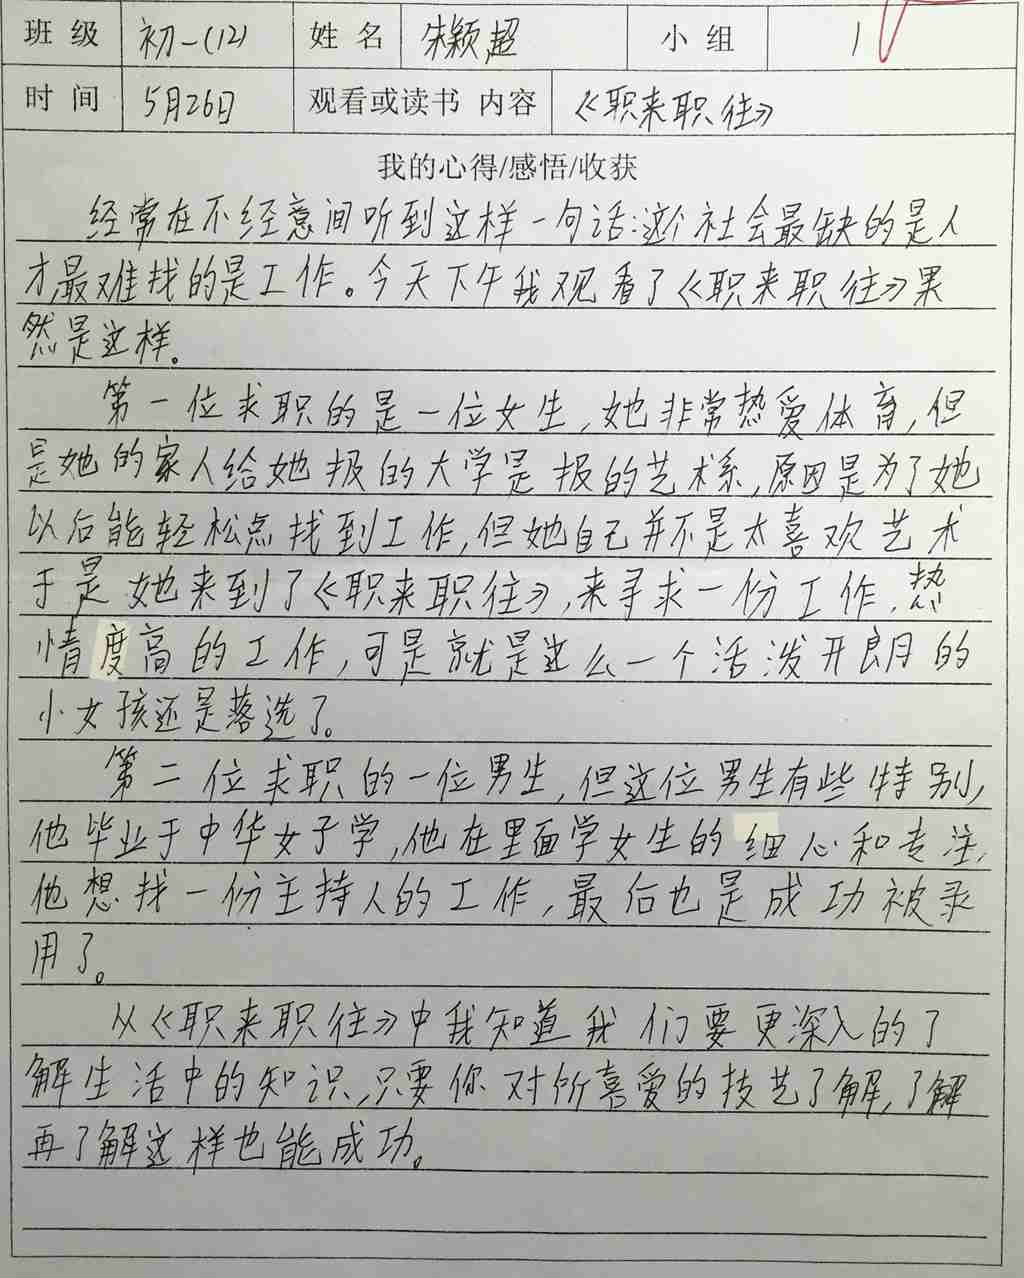 班级 初一(12) 姓名 朱颖超 小组 1
时间 5月26日 观看或读书 内容 《职来职往》
我的心得/感悟/收获
经常在不经意间听到这样一句话:这个社会最缺的是人
才,最难找的是工作。今天下午我观看了《职来职往》果
然是这样。
第一位求职的是一位女生,她非常热爱体育,但
是她的家人给她报的大学是报的艺术系,原因是为了她
以后能轻松点找到工作,但她自己并不是太喜欢艺术
于是她来到了《职来职往》,来寻求一份工作,热
情度高的工作,可是就是这么一个活泼开朗的
小女孩还是落选了。
第二位求职的一位男生,但这位男生有些特别,
他毕业于中华女子学,他在里面学女生的细心和专注,
他想找一份主持人的工作,最后也是成功被录
用了。
从《职来职往》中我知道我们要更深入的了
解生活中的知识,只要你对所喜爱的技艺了解,了解
再了解这样也能成功。